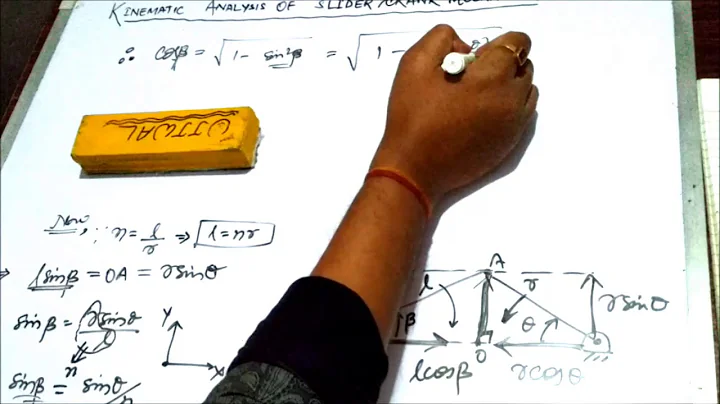 KINEMATIC ANALYSIS OF SLIDER/CRANK
∴ cosβ = √1 - sin²β = √1 -
UJJWAL
Now, ∵ n = l/r ⇒ l = nr
⇒ l sinβ = OA = r sinθ
sinβ = r sinθ/l
n
sinβ = sinθ/n
Y
X
A
l
r
β
θ
r sinθ
O
l cosβ
r cosθ